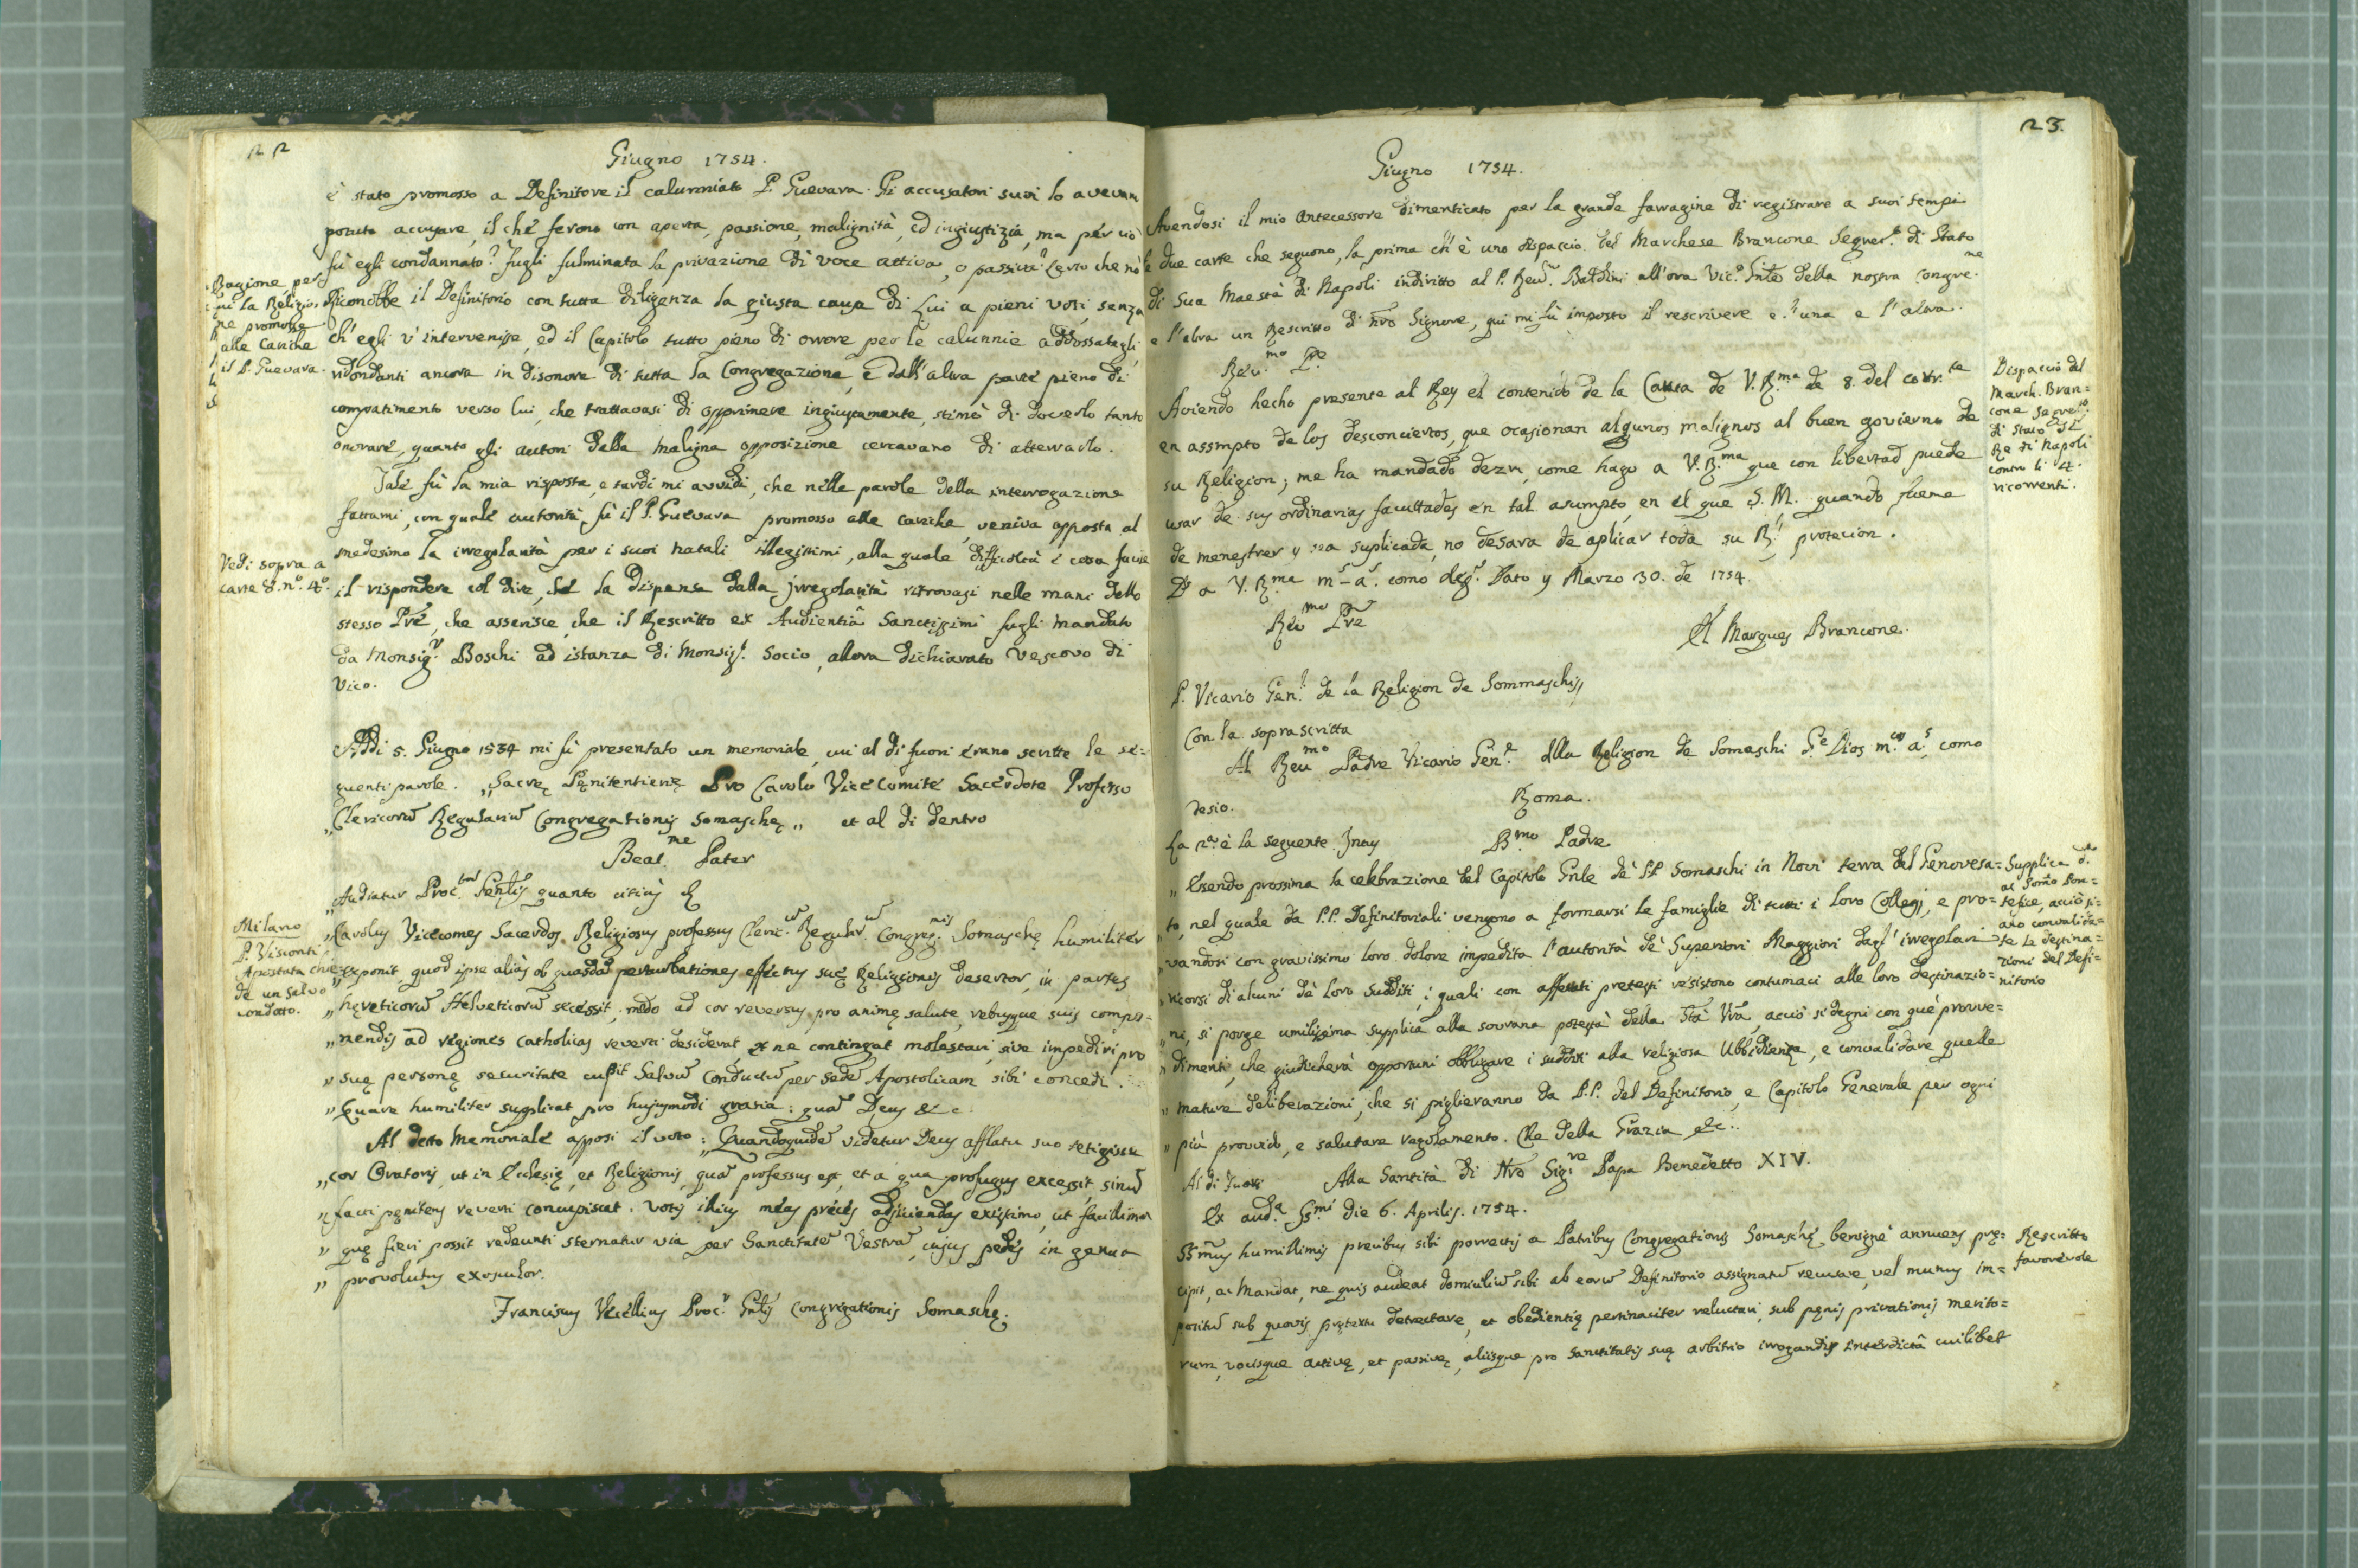 22
Giugno 1754.
è stato promosso a Definitore il calunniato P. Guevara. Gi accusatori suoi lo avevan
potuto accusare, il chè ferono con aperta, passione, malignità, ed ingiustizia, ma per ciò
fù egli condannato? fugli fulminata la privazione di voce attiva, o passiva? Certo che nò
Riconobbe il Definitorio con tutta diligenza la giusta causa di Lui a pieni voti, senza
ch'egli v'intervenisse, ed il Capitolo tutto pieno di orrore per le calunnie addossategli,
ridondanti ancora in disonore di tutta la Congregazione, e dall'altra parte pieno di
compatimento verso lui, che trattavasi di opprimere ingiustamente, stimò di doverlo tanto
onorare, quanto gli autori della maligna opposizione cercavano di atterrarlo.
Ragione per
cui la Religio-
ne promosse
alle Cariche
il P. Guevara.
Tale fù la mia risposta, e tardi mi avvidi, che nelle parole della interrogazione
fattami, con quale autorità fù il P. Guevara promosso alle cariche, veniva apposta al
medesimo la irregolarità per i suoi natali illegittimi, alla quale difficoltà è cosa facile
il rispondere col dire, che la Dispensa dalla irregolarità ritrovasi nelle mani dello
stesso Pre, che asserisce, che il Rescritto ex Audientiâ Sanctissimi fugli mandato
da Monsig.r Boschi ad istanza di Monsig.r Socio, allora dichiarato Vescovo di
Vico.
Vedi sopra a
carte 8. n.o 4.o
Addi 5. Giugno 1534 mi fù presentato un memoriale, cui al di fuori erano scritte le se=
guenti parole. „Sacrę Pęnitentierię Pro Carolo Vicecomite Sacerdote Professo
„Clericorū Regulariū Congregationis Somaschę„ et al di dentro
Beat.me Pater
„Audiatur Proc.tor Gen̄lis quanto citius &
„Carolus Vicecomes Sacerdos Religiosus professus Cleric.ū Regular.ū Congreg.nis Somaschę humiliter
„exponit, quod ipse aliàs ob quasdā perturbationes effectus suę Religionis desertor, in partes
„hęreticorū Helveticorū secessit; modo ad cor reversus, pro animę salute, rebusque suis compo=
„nendis ad regiones Catholicas reverti desiderat, et ne contingat molestari, sive impediri, pro
„suę personę securitate cupit Salvū Conductū per Sedē Apostolicam sibi concedi.
„Quare humiliter supplicat pro hujusmodi gratia: quā Deus &c.
Milano
P. Visconti
Apostata chie-
de un salvo
condotto.
Al detto Memoriale apposi il voto: „Quandoquidē videtur Deus afflatu suo tetigisse
„cor Oratoris, ut in Ecclesię, et Religionis, quā professus est, et a qua profugus excessit, sinū
„facti pęnitens reverti concupiscat. Votis illius meas preces adjiciendas existimo, ut facilimor
„quę fieri possit redeunti sternatur via per Sanctitatē Vestrā, cujus pedes in genua
„provolutus exosculor.
Franciscus Vecellius Proc.r Gn̄lis Congregationis Somaschę.
23.
Giugno 1754.
Avendosi il mio Antecessore dimenticato per la grande farragine di registrare a suoi tempi
le due carte che seguono, la prima ch'è uno dispaccio del Marchese Brancone Segret.o di Stato
di Sua Maestà di Napoli indiritto al P. Reu.mo Baldini all'ora Vic.o Gn̄le della nostra Congre.ne
e l'altra un Rescritto di n̄ro Signore, qui mi fù imposto il rescrivere e l'una e l'altra.
Reu.mo P.e
Aviendo hecho presente al Rey el contenido de la Carta de V.R.ma de 8. del corr.te
en assmpto de los desconciertos, que ocasionan algunos malignos al buen govierno de
su Religion; me ha mandado dezir, come hago a V.R.ma que con libertad puede
usar de sus ordinarias facultades en tal asumpto, en el que S. M. quando fuere
de menestrer y sea suplicada, no desara de aplicar toda su R.l protecion.
D.s a V.R.ma m.s a.s como des.o Pato y Marzo 30. de 1754.
Reu.mo Pre
El Marques Brancone.
Dispaccio del
March. Bran=
cone Segret.o
di Stato del
Re di Napoli
contro li 4.
ricorrenti.
P. Vicario Gen.l de la Religion de Sommaschis,
Con la soprascritta
Al Reu.mo Padre Vicario Gen.l della Religion de Somaschi G.e Dios m.s a.s como
desio.
Roma.
La 2.a è la seguente. Intus
B.mo Padre
„Essendo prossima la celebrazione del Capitolo Gn̄le de' PP Somaschi in Novi terra del Genovesa=
„to, nel quale da P.P. Definitoriali vengono a formarsi le famiglie di tutti i loro Collegj, e pro=
„vandosi con gravissimo loro dolore impedita l'autorità de' Superiori Maggiori dagl'irregolari
„ricorsi di alcuni de' loro Sudditi, i quali con affettati pretesti resistono contumaci alle loro destinazio=
„ni, si porge umilissima supplica alla sovrana potestà della S̄tà V̄ra, acciò si degni con que' provve=
„dimenti, che giudicherà opportuni obbligare i sudditi alla religiosa Ubbidienza, e convalidare quelle
„mature deliberazioni, che si piglieranno da P.P. del Definitorio, e Capitolo Generale per ogni
„più provvido, e salutare regolamento. Che della Grazia &c.
Supplica d.ta
al Som̄o Pon=
tefice, acciò si=
ano convalida=
te le destina=
zioni del Defi=
nitorio
Al di fuori Alla Santità di N̄ro Sig.re Papa Benedetto XIV.
Ex aud.a SS.mi die 6. Aprilis. 1754.
SS.mus humillimis precibus sibi porrectis a Patribus Congregationis Somaschę benignè annuens pre=
cipit, ac Mandat, ne quis audeat domiciliū sibi ab eorū Definitorio assignatū recusare, vel munus im=
positū sub quovis prętextu detrectare, et obedientię pertinaciter reluctari, sub pęnis privationis merito=
rum, vocisque activę, et passivę, aliisque pro Sanctitatis suę arbitrio irrogandis interdictâ cuilibet
Rescritto
favorevole